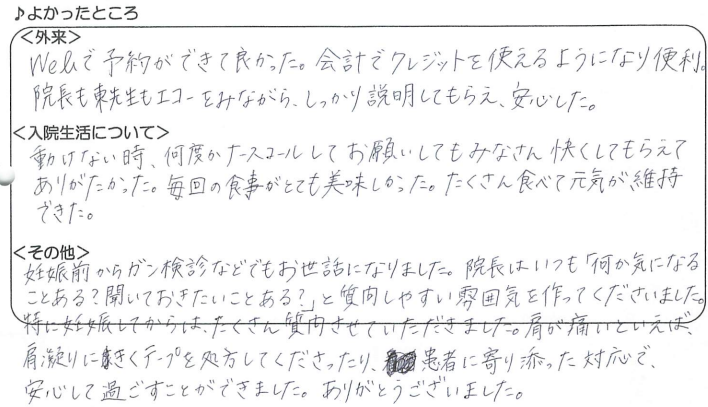 ♪よかったところ
＜外来＞
Webで予約ができて良かった。会計でクレジットを使えるようになり便利。
院長も東先生もエコーをみながら、しっかり説明してもらえ、安心した。
＜入院生活について＞
動けない時、何度かナースコールしてお願いしてもみなさん快くしてもらえて
ありがたかった。毎回の食事がとても美味しかった。たくさん食べて元気が維持
できた。
＜その他＞
妊娠前からガン検診などでもお世話になりました。院長はいつも「何か気になる
ことある?聞いておきたいことある?」と質問しやすい雰囲気を作ってくださいました。
特に妊娠してからは、たくさん質問させていただきました。肩が痛いといえば、
肩凝りにきくテープを処方してくださったり、患者に寄り添った対応で、
安心して過ごすことができました。ありがとうございました。